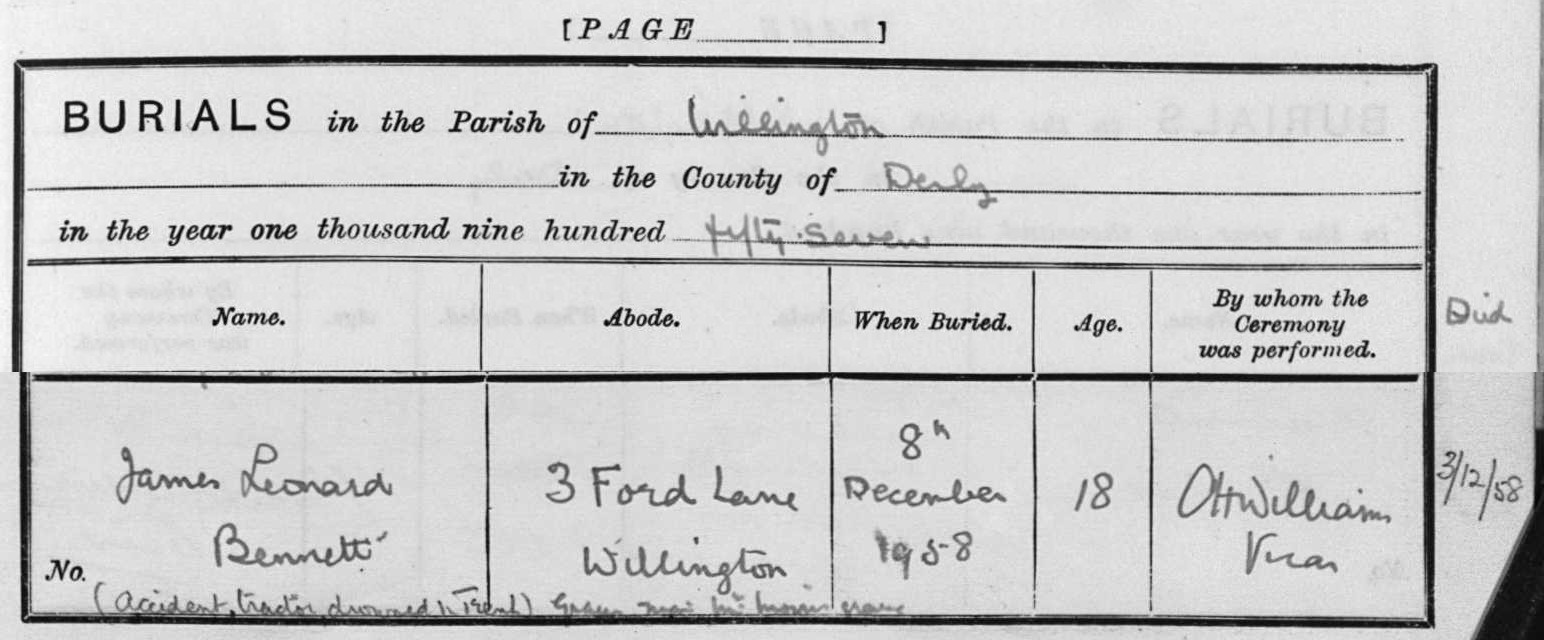 [PAGE ]
BURIALS in the Parish of Willington
in the County of Derby
in the year one thousand nine hundred fifty-seven
Name. Abode. When Buried. Age. By whom the Ceremony was performed. Died
James Leonard Bennett 3 Ford Lane Willington 8th December 1958 18 Williams Vicar 3/12/58
No.
(accident, tractor, drowned in Trent) Grave near grave